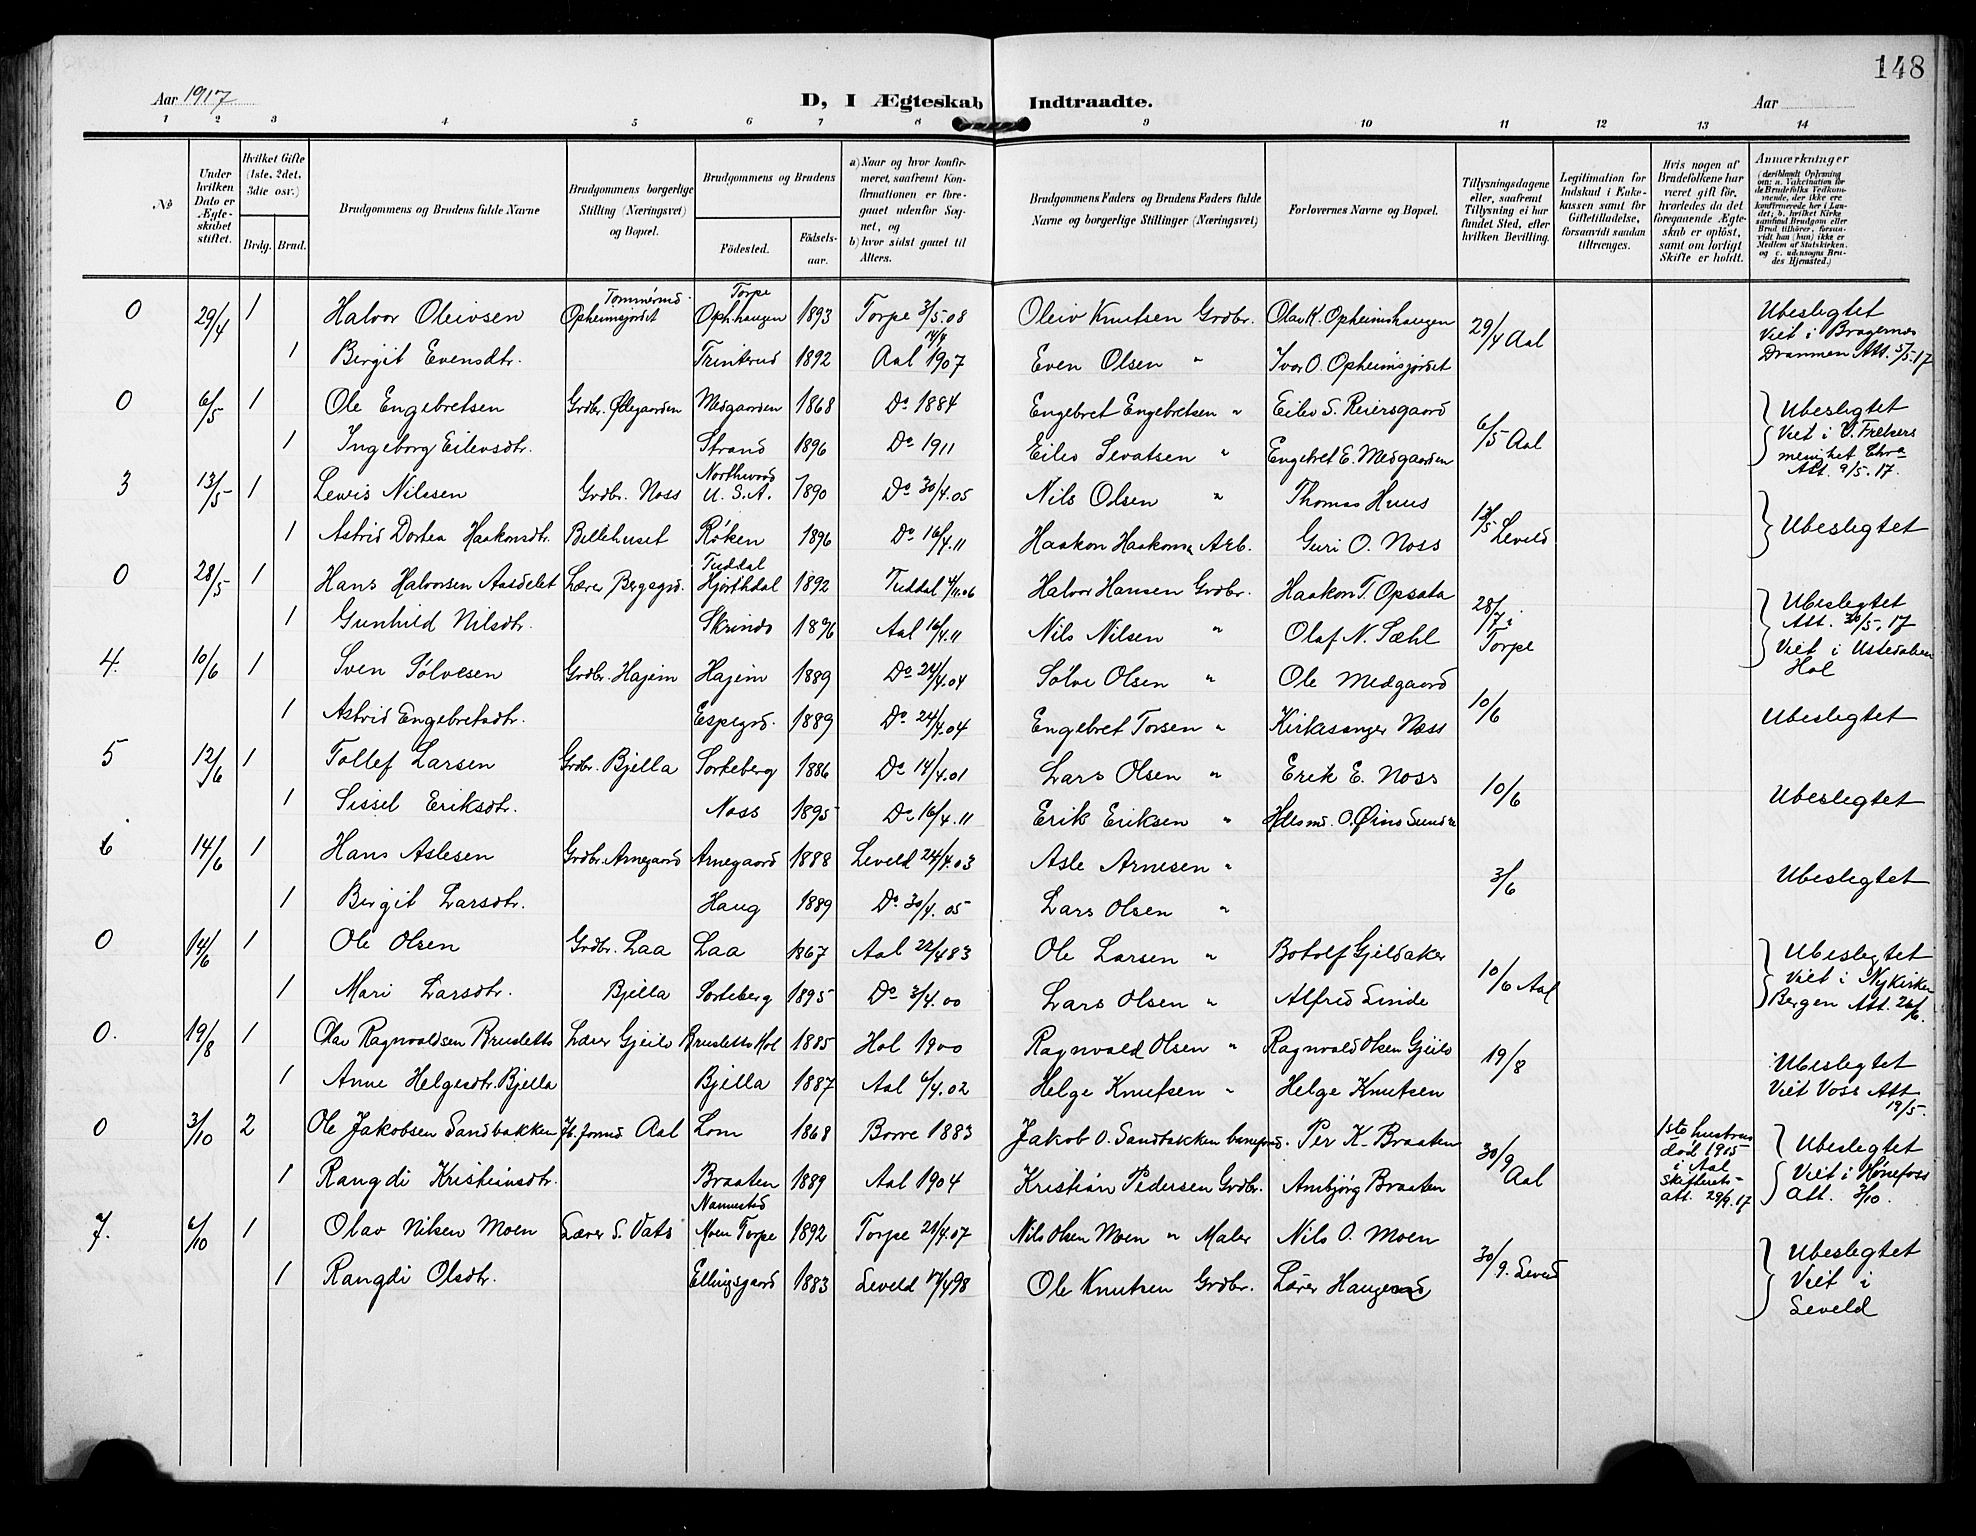 148
Aar 1917 D, I Ægteskab Indtraadte. Aar
1 2 3 4 5 6 7 8 9 10 11 12 13 14
№
Under hvilken Dato er Ægteskabet stiftet.
Hvilket Gifte (1ste, 2det, 3die osv.)
Brdg. Brud.
Brudgommens og Brudens fulde Navne
Brudgommens borgerlige Stilling (Næringsvei) og Bopæl.
Brudgommens og Brudens
Fødested. Fødselsaar.
a) Naar og hvor konfirmeret, saafremt Konfirmationen er foregaaet udenfor Sognet, og
b) hvor sidst gaaet til Alters.
Brudgommens Faders og Brudens Faders fulde Navne og borgerlige Stillinger (Næringsvei)
Forlovernes Navne og Bopæl.
Tillysningsdagene eller, saafremt Tillysning ei har fundet Sted, efter hvilken Bevilling.
Legitimation for Indskud i Enkekassen samt for Giftetilladelse, forsaavidt saadan tiltrænges.
Hvis nogen af Brudefolkene har været gift før, hvorledes da det foregaaende Ægteskab er opløst, samt om lovligt Skifte er holdt.
Anmærkninger (deriblandt Oplysning om: a. Vakcination for de Brudefolks Vedkommende, der ikke ere konfirmerede her i Landet; b. hvilket Kirkesamfund Brudgom eller Brud tilhører, forsaavidt han (hun) ikke er Medlem af Statskirken, og c. udensogns Brudes Hjemsted.)
0 29/4 1 Halvor Oleivsen Tømmermd. Opheimsjordet Torpe Ophhaugen 1893 Torpe 3/5.08 Oleiv Knutsen Grdbr. Olav K. Opheimshaugen 29/4 Aal Ubeslegtet Viet i Bragernes Drammen Att. 5/5.17
1 Birgit Evensdtr. Trintrud 1892 Aal 14/4 1907 Even Olsen " Ivar O. Opheimsjordet
0 6/5 1 Ole Engebretsen Grdbr. Ødegaarden Medgaarden 1868 Do 1884 Engebret Engebretsen " Eilev S. Reiersgaard 6/5 Aal Ubeslegtet Viet i V. Frelsers menighet Chra Att. 9/5.17.
1 Ingeborg Eilevsdtr. Strand 1896 Do 1911 Eilev Sevatsen " Engebret E. Medgaarden
3 13/5 1 Lewis Nilssen Grdbr. Noss Northwood U.S.A. 1890 Do 30/4.05 Nils Olsen " Thomas Huus 13/5 Leveld Ubeslegtet
1 Astrid Dortea Haakonsdtr. Bellehuset Røken 1896 Do 16/4.11 Haakon Haakons. Arb. Guri O. Noss
0 28/5 1 Hans Halvorsen Aasdelet Lærer Bergsgrd. Tuddal Hjorthdal 1892 Tuddal 4/11.06 Halvor Hansen Grdbr. Haakon T. Opsata 28/5 i Torpe Ubeslegtet Att. 30/5.17 Viet i Ustedalen Hol
1 Gunhild Nilsdtr. Skrindo 1896 Aal 16/4.11 Nils Nilsen " Olaf N. Sæhl
4. 10/6 1 Sven Sølvesen Grdbr. Hajem Hajem 1889 Do 24/4.04 Sølve Olsen " Ole Medgaard 10/6 Ubeslegtet
1 Astrid Engebretsdtr. Espegrd. 1889 Do 24/4.04 Engebret Torsen " Kirkesanger Næss
5 12/6 1 Tollef Larsen Grdbr. Bjella Sorteberg 1886 Do 14/4.01 Lars Olsen " Erik E. Noss 10/6 Ubeslegtet
1 Sissel Eriksdtr. Noss 1895 Do 16/4.11 Erik Eriksen "
6 14/6 1 Hans Aslesen Grdbr. Arnegaard Arnegaard 1888 Leveld 24/4.03 Asle Arnesen " 3/6 Ubeslegtet
1 Birgit Larsdtr. Haug 1889 Do 30/4.05 Lars Olsen "
0 14/6 1 Ole Olsen Grdbr. Laa Laa 1867 Aal 22/4 83 Ole Larsen " Botolf Gjeldaker 10/6 Aal Ubeslegtet Viet i Nykirken Bergen Att. 26/6.
1 Mari Larsdtr. Bjella Sorteberg 1895 Do 3/4.00 Lars Olsen " Alfred Linde
0. 19/8 1 Olav Ragnvaldsen Brusletto Lærer Gjeilo Brusletto Hol 1885 Hol 1900 Ragnvald Olsen " Ragnvald Olsen Gjeilo 19/8 Ubeslegtet Viet Voss Att 19/5.
1 Anne Helgesdtr. Bjella Bjella 1887 Aal 6/4.02 Helge Knutsen " Helge Knutsen
0 3/10 2 Ole Jakobsen Sandbakken Jb. formd. Aal Lom 1868 Borre 1883 Jakob O. Sandbakken Per K. Braaten 30/9 Aal 1ste hustru død 1905 i Aal skifterets-att. 29/9.17 Ubeslegtet Viet i Hønefoss Att. 3/10.
1 Rangdi Kristiansdtr. Braaten 1889 Aal 1904 Kristian Pedersen Grdbr. Ambjørg Braaten
7. 6/10 1 Olav Nilsen Moen Lærer S. Vats Nannestad Moen Torpe 1892 Torpe 21/4.07 Nils Olsen Moen " Maler Nils O. Moen 30/9. Leveld Ubeslegtet Viet i Leveld
1 Rangdi Olsdtr. Ellingsgaard 1883 Leveld 17/4 98 Ole Knutsen Grdbr. Lærer Haugerud